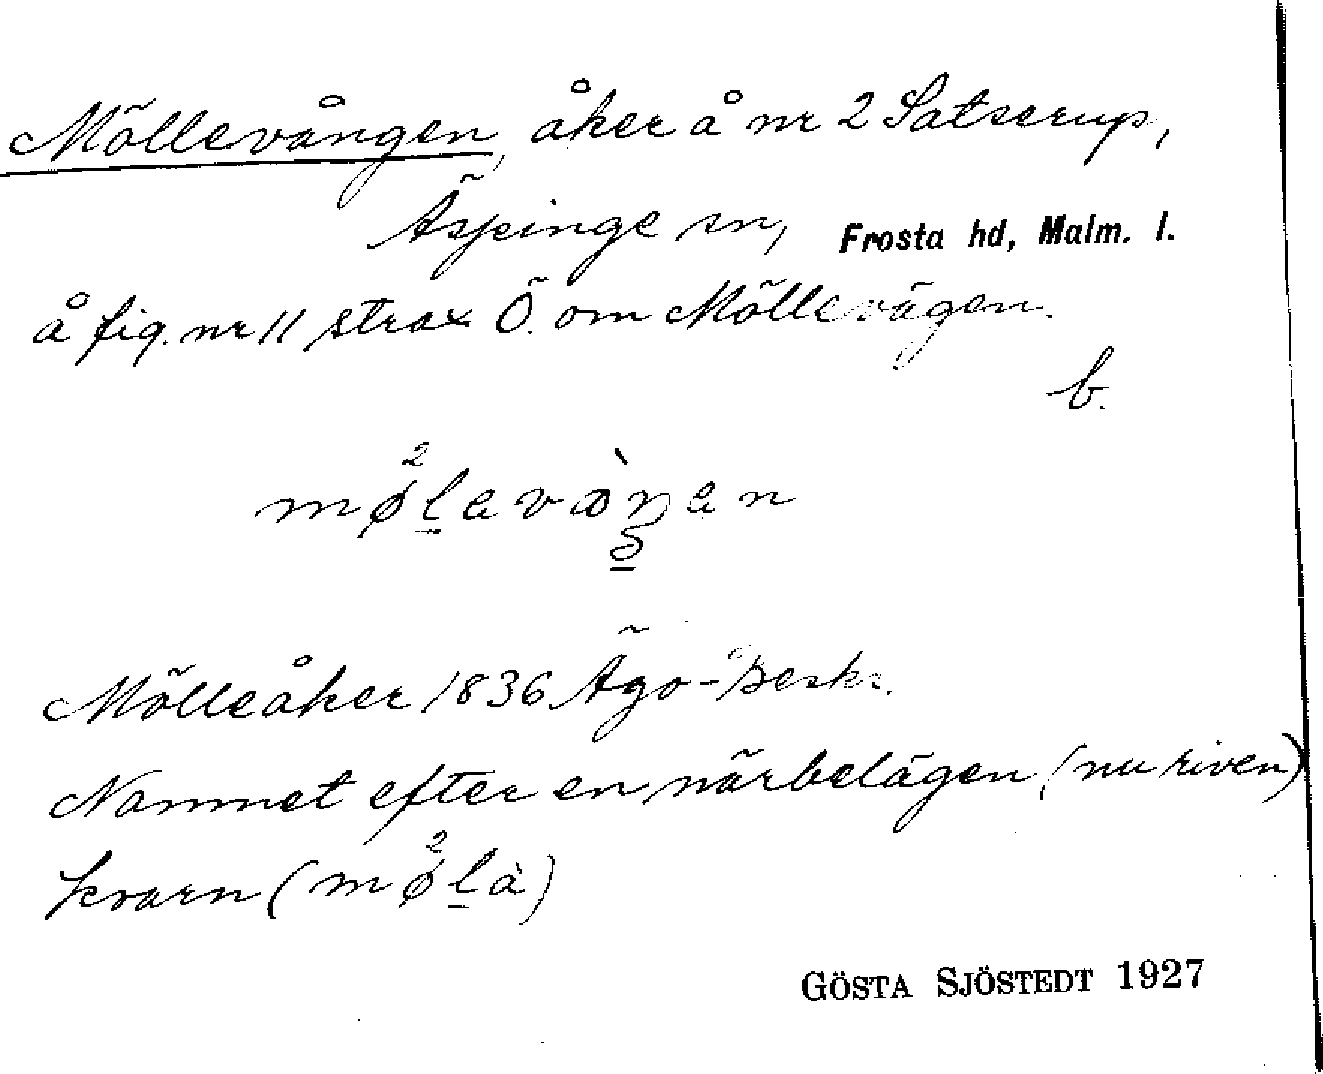 Möllevången, åker å nr 2 Satserup,
Äspinge sn, Frosta hd, Malm. l.
å fig. nr 11 strax Ö. om Möllevägen.
b.
mø²lavàŋen
Mölleåker 1836 Ägo-Beskr.
Namnet efter en närbelägen (nu riven)
kvarn (mø²là)
GÖSTA SJÖSTEDT 1927